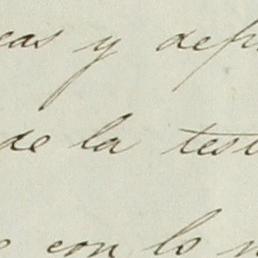 eas y dep
de la test
con lo n